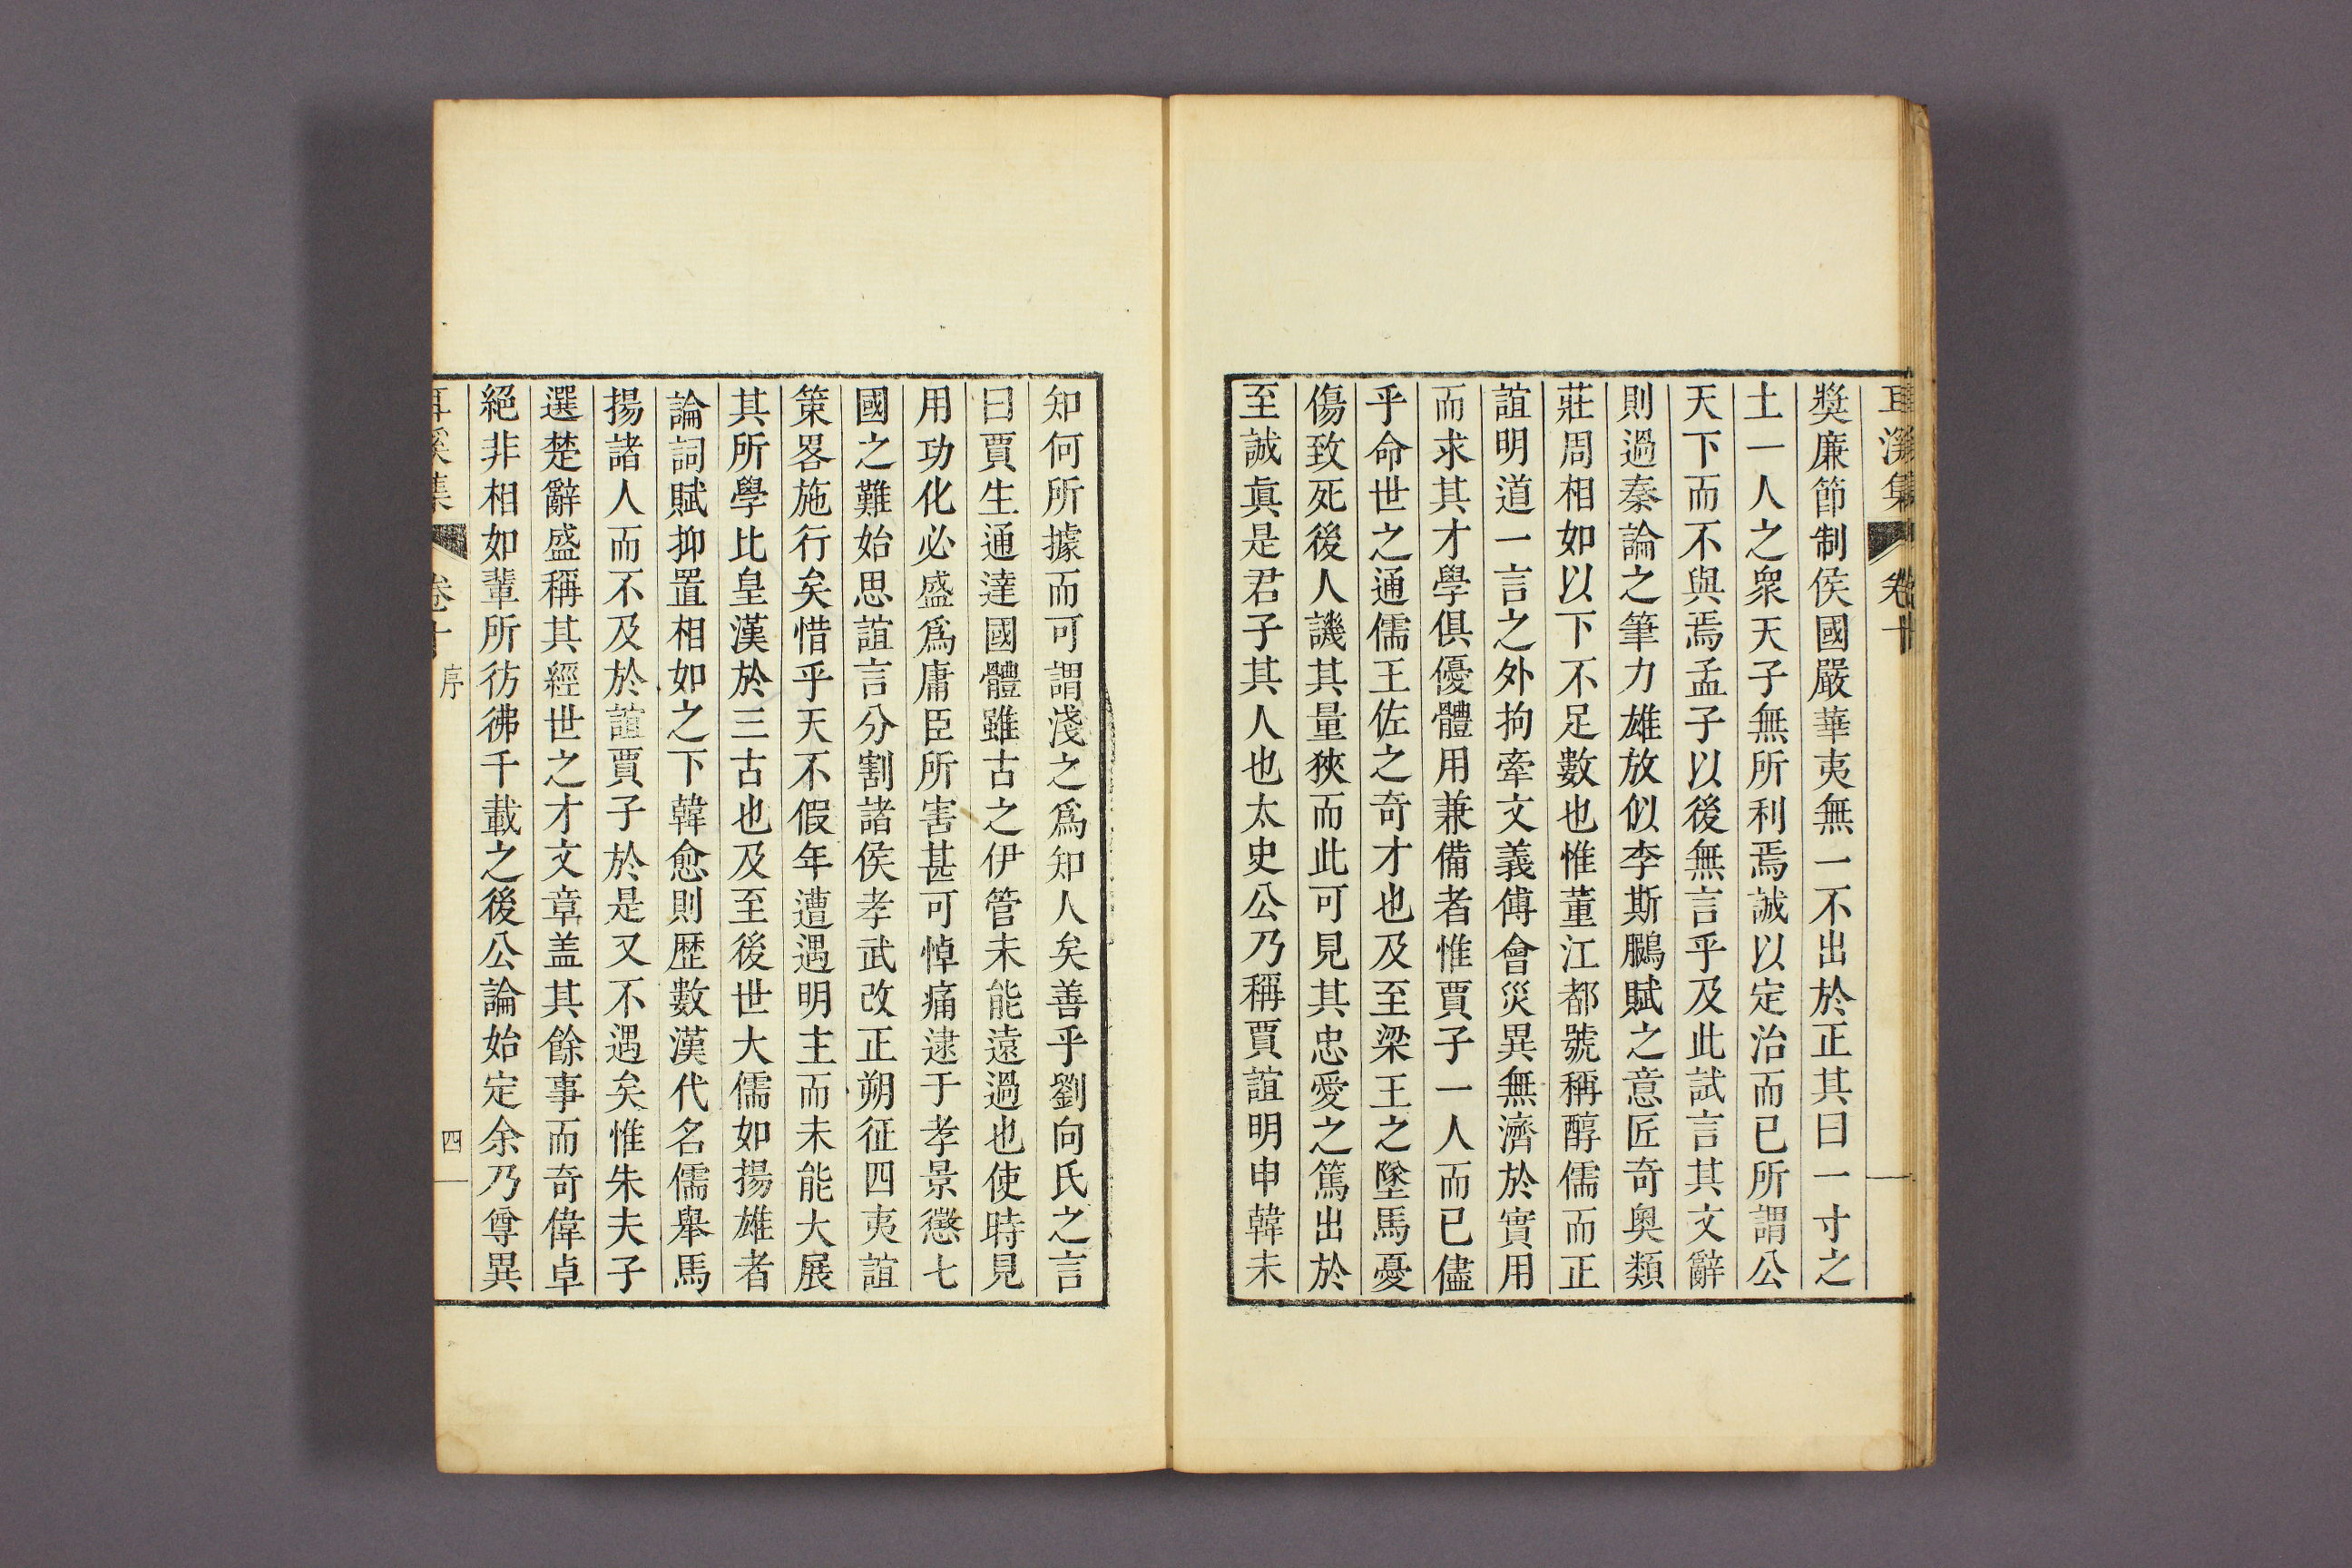 耳溪集 卷十
奬廉節制侯國嚴華夷無一不出於正其曰一寸之
土一人之衆天子無所利焉誠以定治而已所謂公
天下而不與焉孟子以後無言乎及此試言其文辭
則過秦論之筆力雄放似李斯鵩賦之意匠奇奧類
莊周相如以下不足數也惟董江都號稱醇儒而正
誼明道一言之外拘牽文義傅會災異無濟於實用
而求其才學俱優體用兼備者惟賈子一人而已儘
乎命世之通儒王佐之奇才也及至梁王之墜馬憂
傷致死後人譏其量狹而此可見其忠愛之篤出於
至誠眞是君子其人也太史公乃稱賈誼明申韓未
知何所據而可謂淺之爲知人矣善乎劉向氏之言
曰賈生通達國體雖古之伊管未能遠過也使時見
用功化必盛爲庸臣所害甚可悼痛逮于孝景懲七
國之難始思誼言分割諸侯孝武改正朔征四夷誼
策畧施行矣惜乎天不假年遭遇明主而未能大展
其所學比皇漢於三古也及至後世大儒如揚雄者
論詞賦抑置相如之下韓愈則歷數漢代名儒舉馬
揚諸人而不及於誼賈子於是又不遇矣惟朱夫子
選楚辭盛稱其經世之才文章盖其餘事而奇偉卓
絕非相如輩所彷彿千載之後公論始定余乃尊異
耳溪集 卷十 序 四